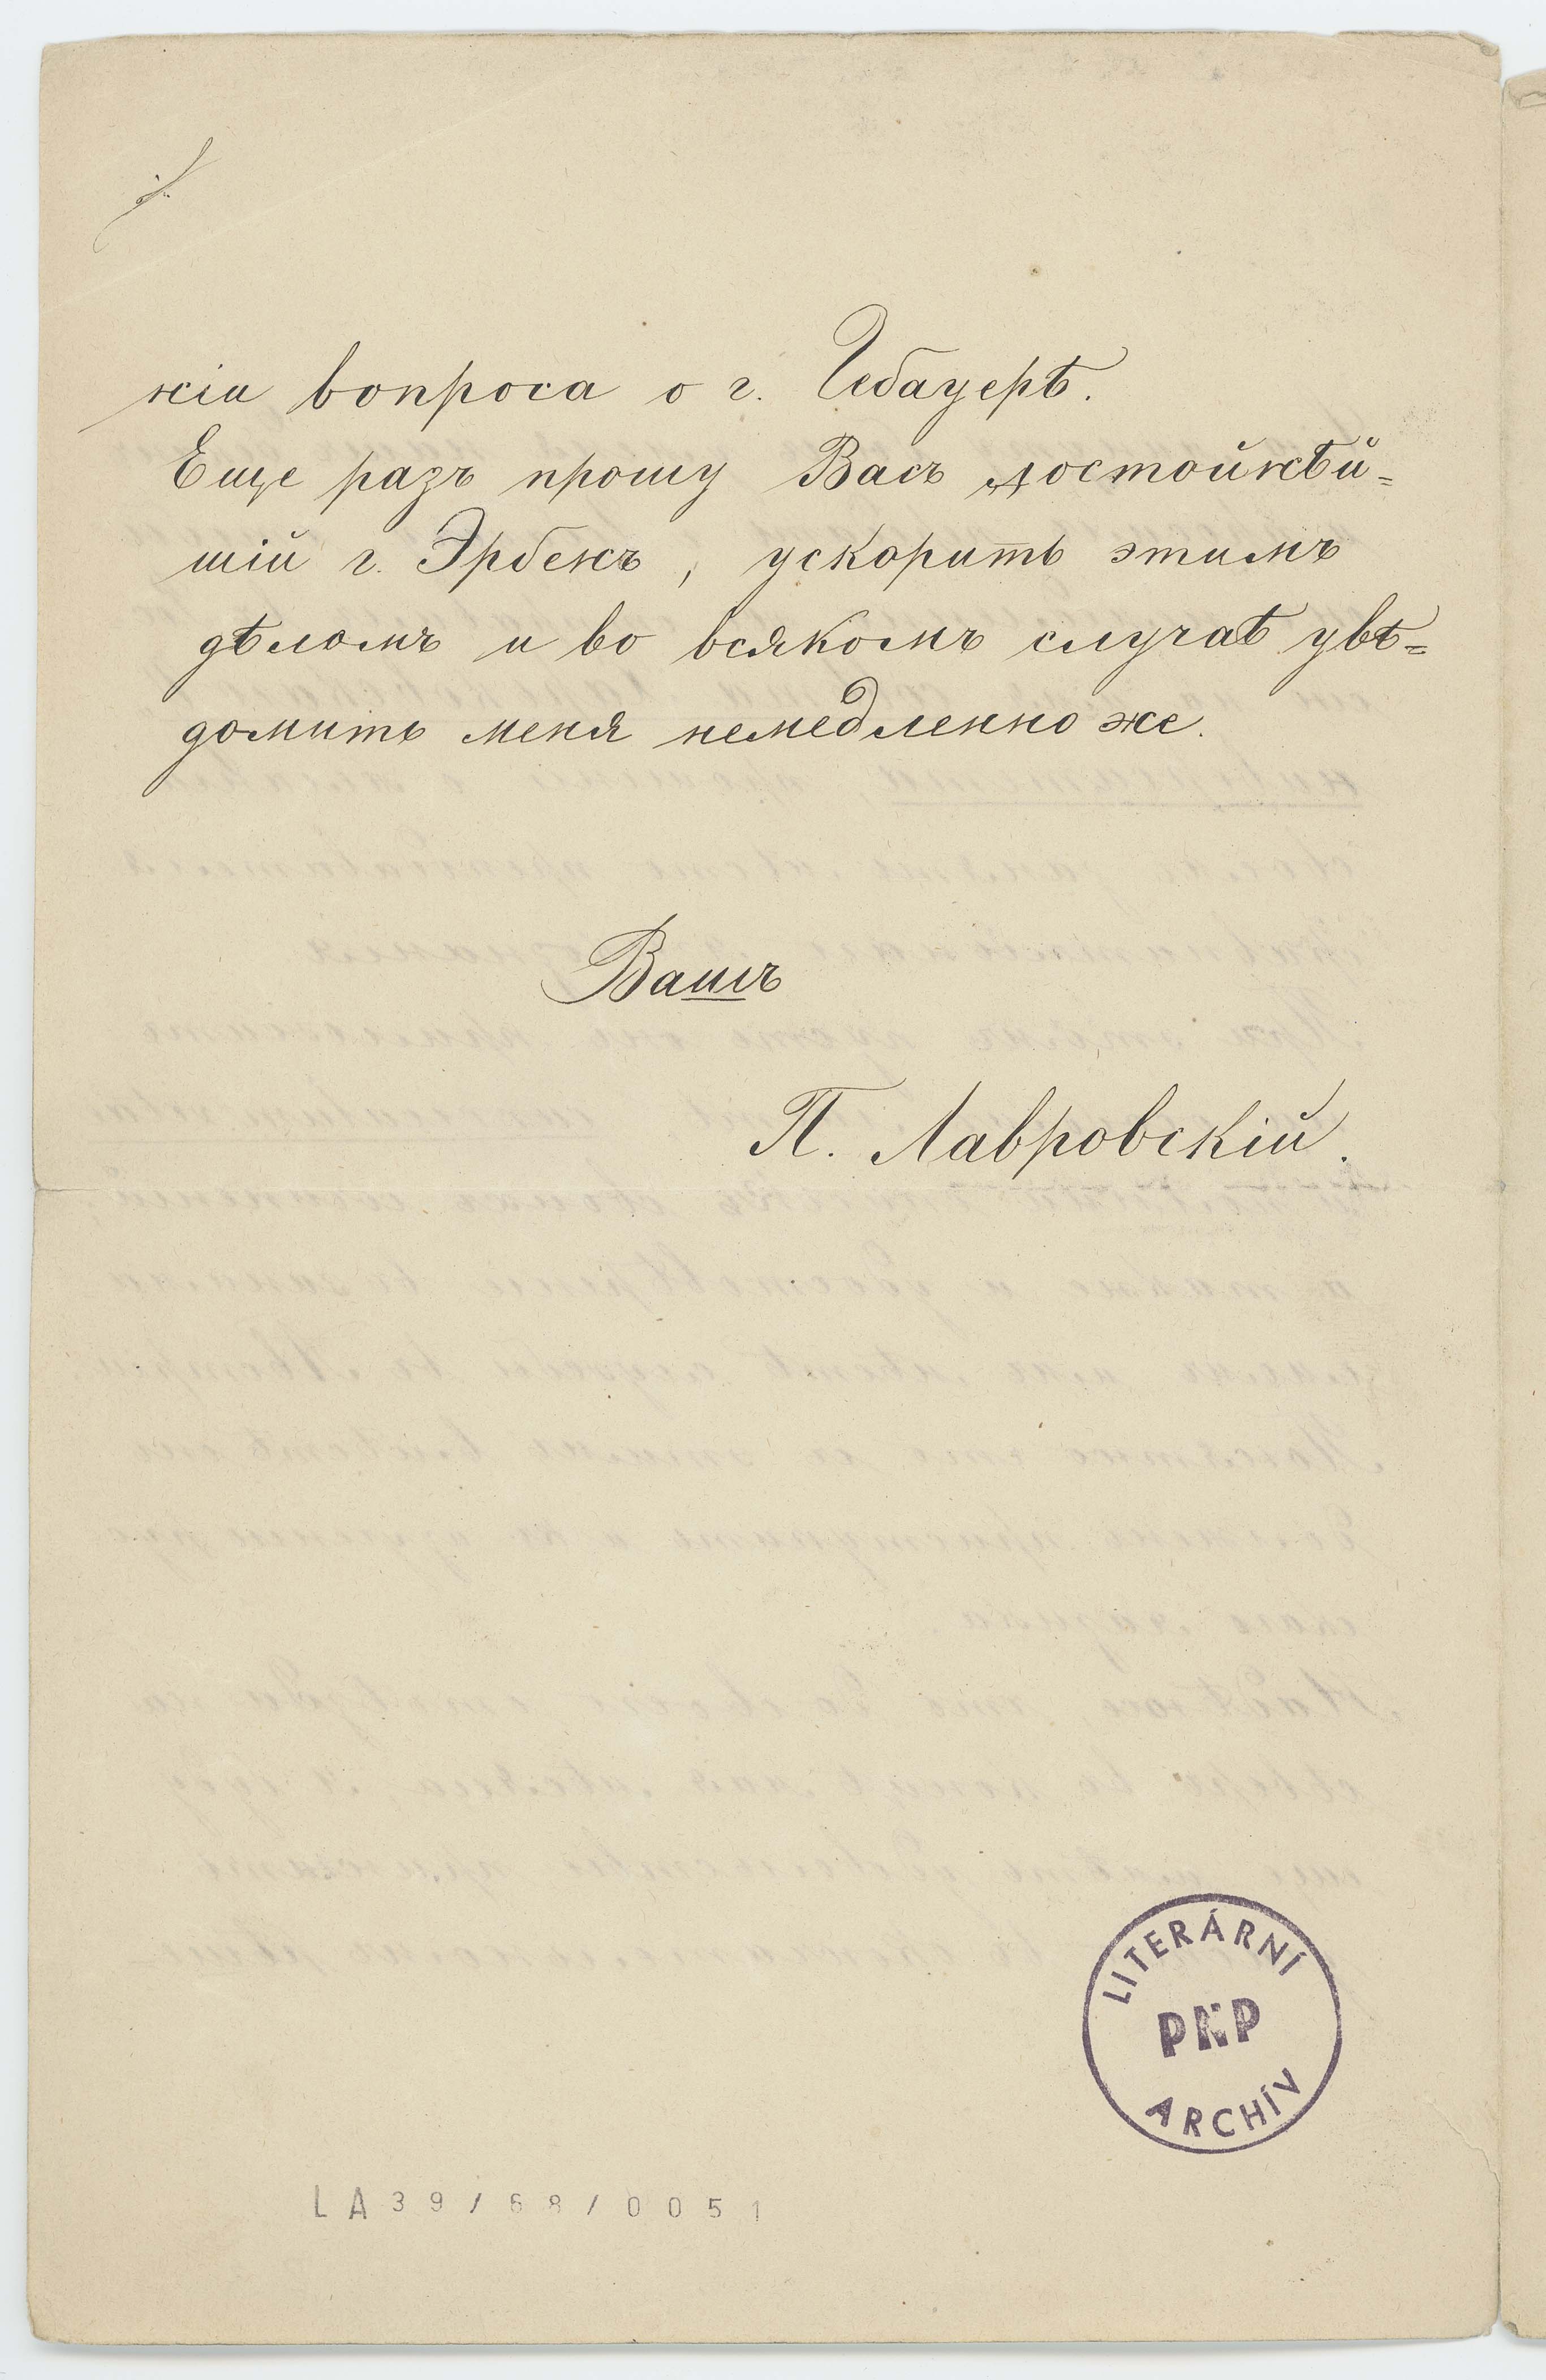 нія вопроса о г. Гебауерѣ.
Еще разъ прошу Васъ достойнѣй=
шій г. Эрбенъ, ускорить этимъ
дѣломъ и во всякомъ случаѣ увѣ=
домить меня немедленно же.
Вашъ
П. Лавровскій.
LITERÁRNÍ
PNP
ARCHÍV
LA39/68/0051